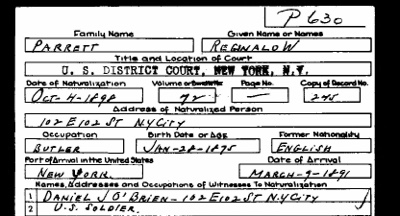 P630
Family Name Given Name or Names
PARRETT REGINALD W
Title and Location of Court
U. S. DISTRICT COURT, NEW YORK, N.Y.
Date of Naturalization Volume or Bundle No. Page No. Copy of Record No.
OCT-4-1898 72 - 245
Address of Naturalized Person
102 E 102 ST N.Y CITY
Occupation Birth Date or Age Former Nationality
BUTLER JAN-28-1875 ENGLISH
Port of Arrival in the United States Date of Arrival
NEW YORK. MARCH-9-1891
Names, Addresses and Occupations of Witnesses To Naturalization
1 DANIEL J O'BRIEN-102 E 102 ST N.Y CITY
2 U.S. SOLDIER.